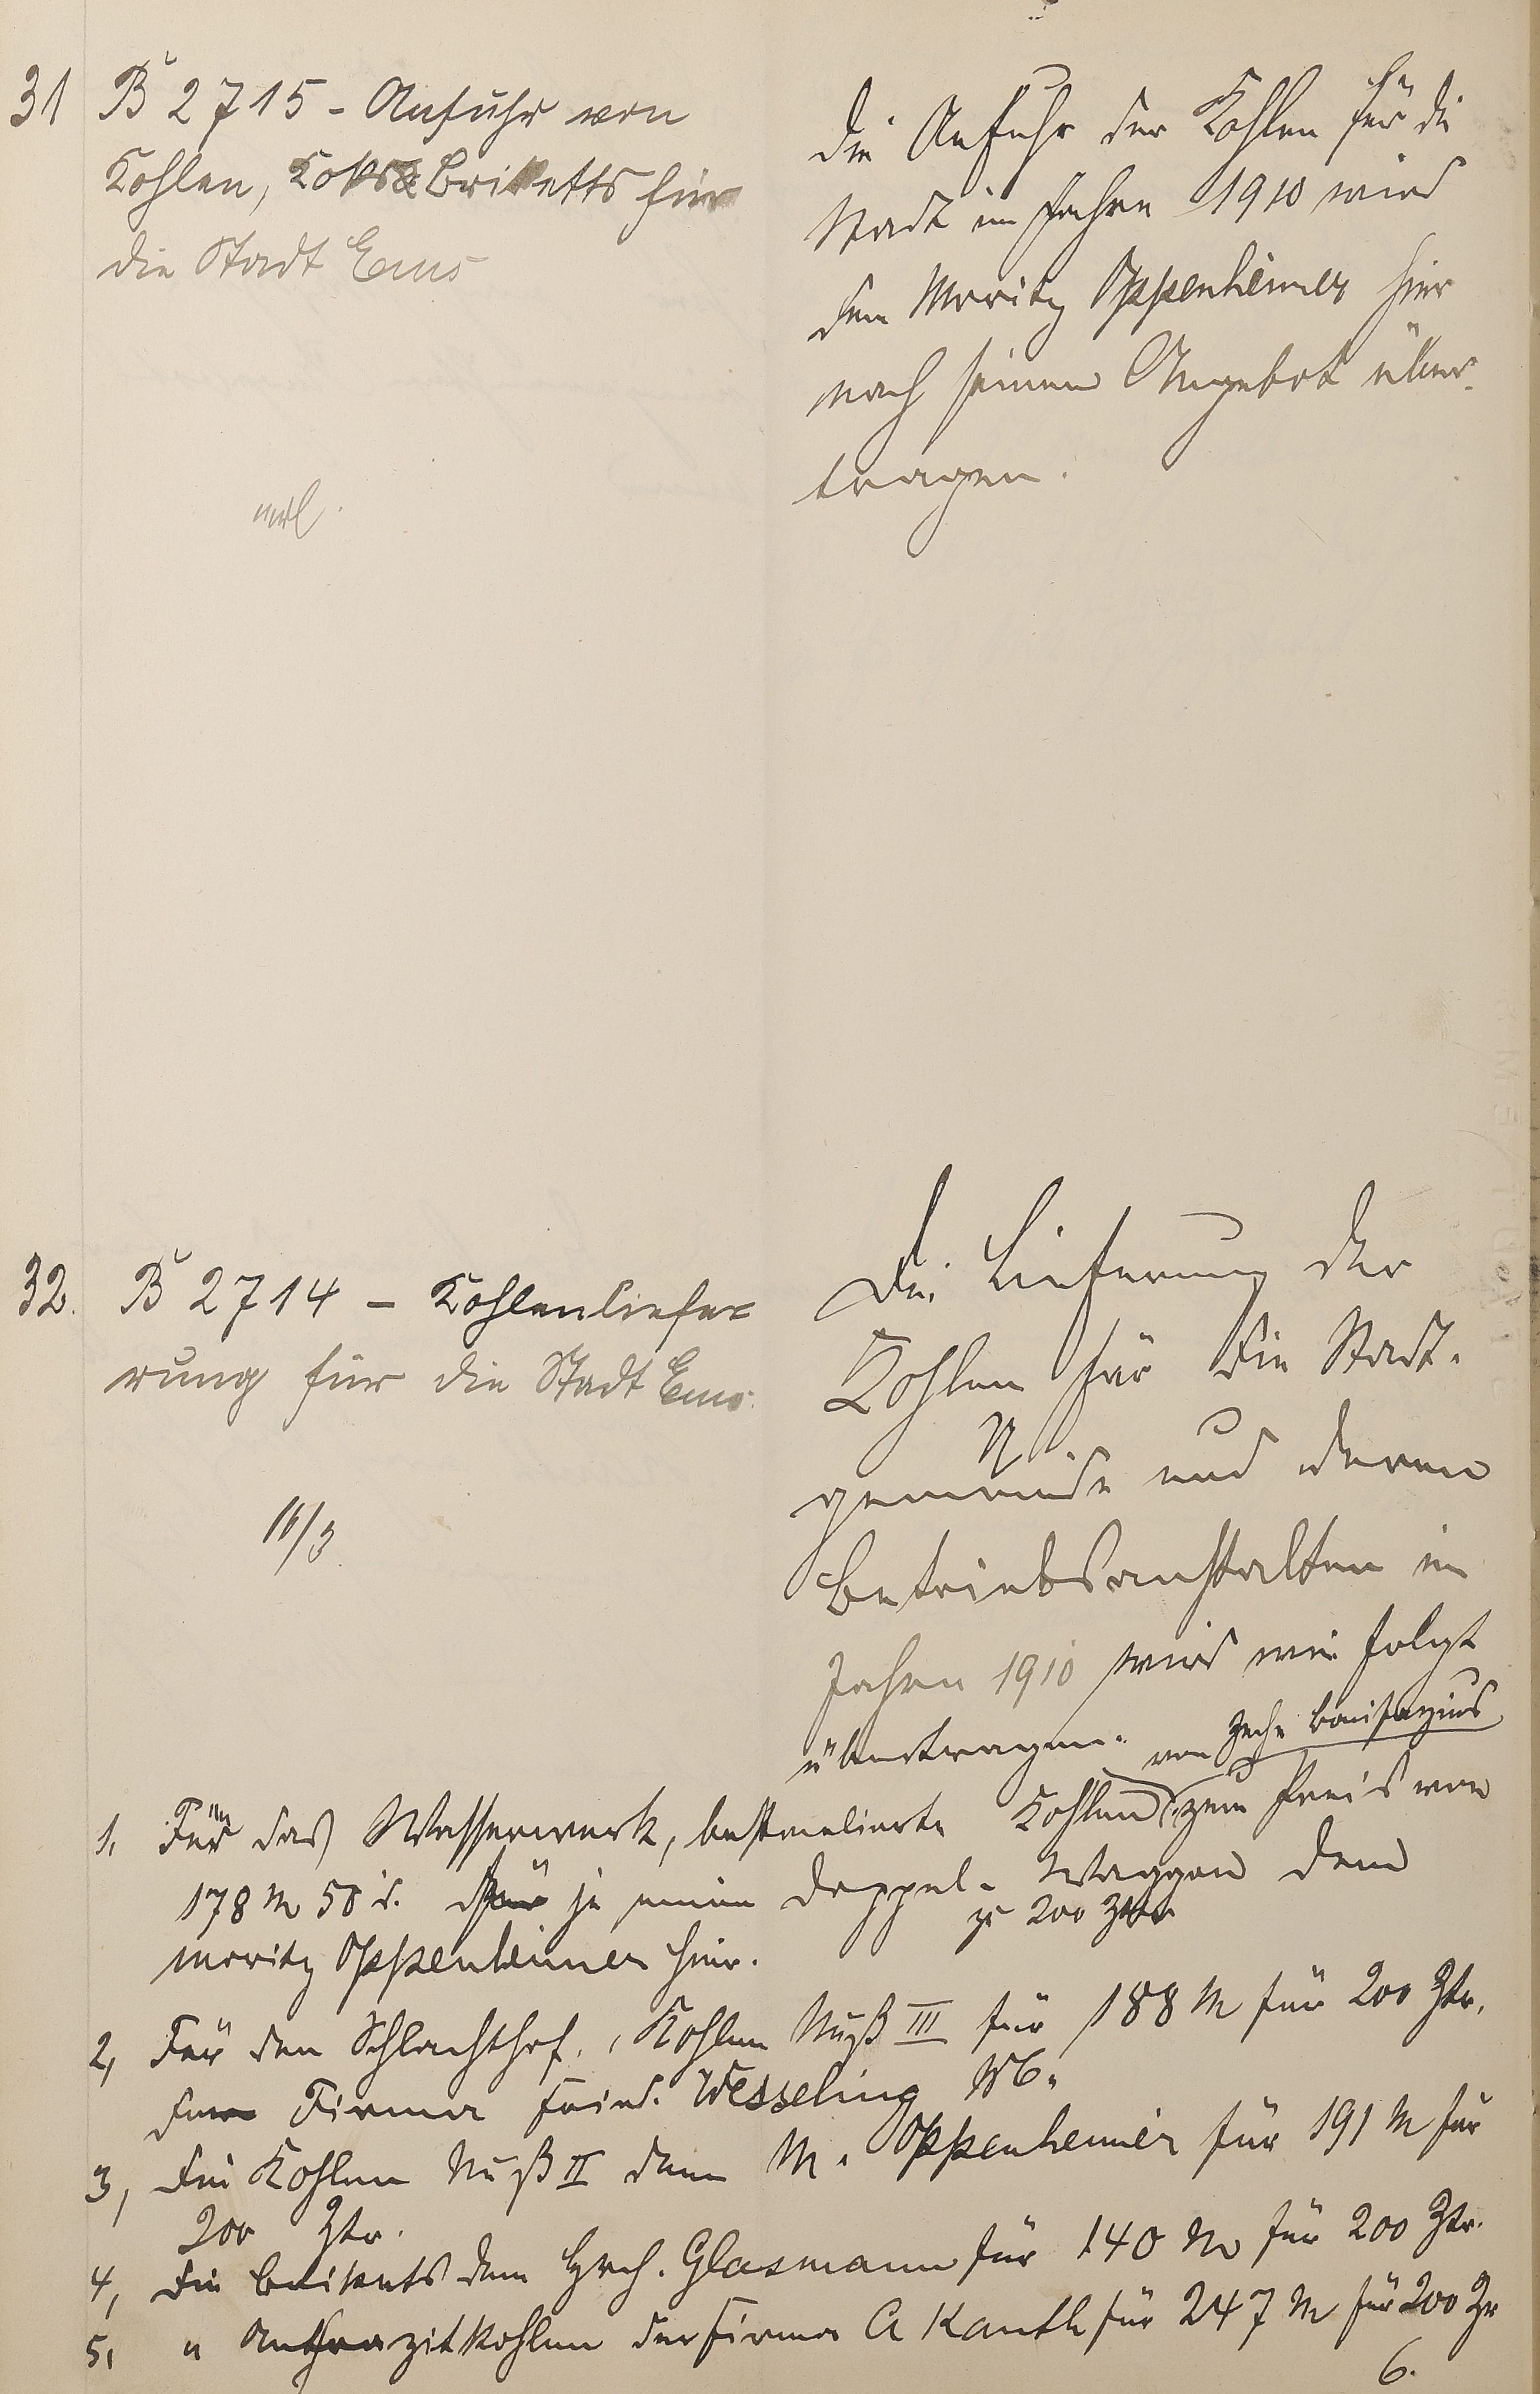 31 B 2715 - Anfuhr von
Kohlen, Koks & Briketts für
die Stadt Ems
Die Anfuhr der Kohlen für die
Stadt im Jahre 1910 wird
dem Moritz Oppenheimer hier
nach seinem Angebot über-
tragen.
32. B 2714 - Kohlenliefe-
rung für die Stadt Ems.
16/3
Die Lieferung der
Kohlen für die Stadt-
gemeinde und deren
Betriebsanstalten im
Jahre 1910 wird wie folgt
übertragen.
von Zeche Bonifazius
1. Für das Wasserwerk, bestmelierte Kohlen zum Preis von
178 M 50 für je einen Doppel-Waggon dem
zu 200 Ztr.
Moritz Oppenheimer hier.
2, Für den Schlachthof, Kohlen Nuß III für 188 M für 200 Ztr.
der Firma Fried. Wesseling
3, Die Kohlen Nuß II dem M. Oppenheimer für 191 M für
200 Ztr.
4, Die Brikets dem Hrch. Glasmann für 140 M für 200 Ztr.
5, " Anthrazitkohlen der Firma A Kauth für 247 M für 200 Ztr
6.